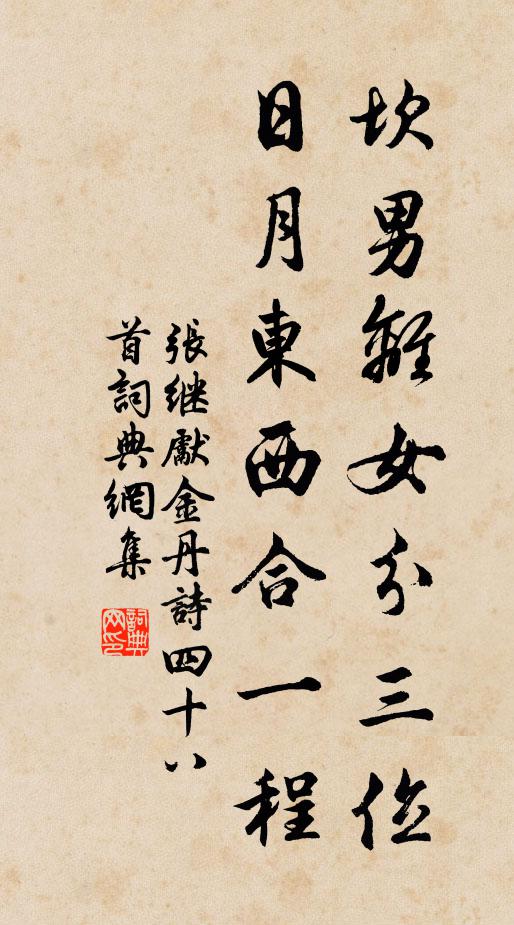 坎男離女分三位
日月東西合一程
張继獻金丹詩四十八
首詞典網集
詞典
网印